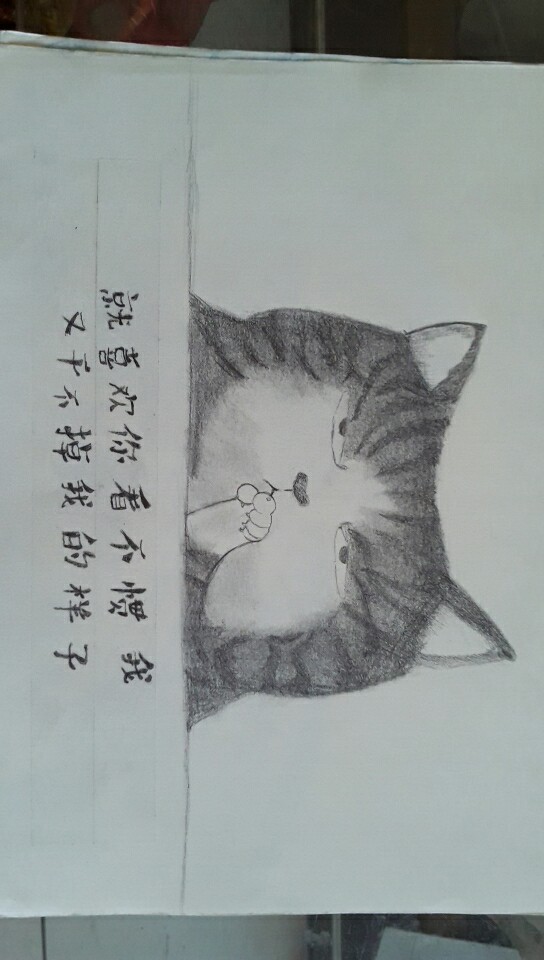 就喜欢你看不惯我
又干不掉我的样子